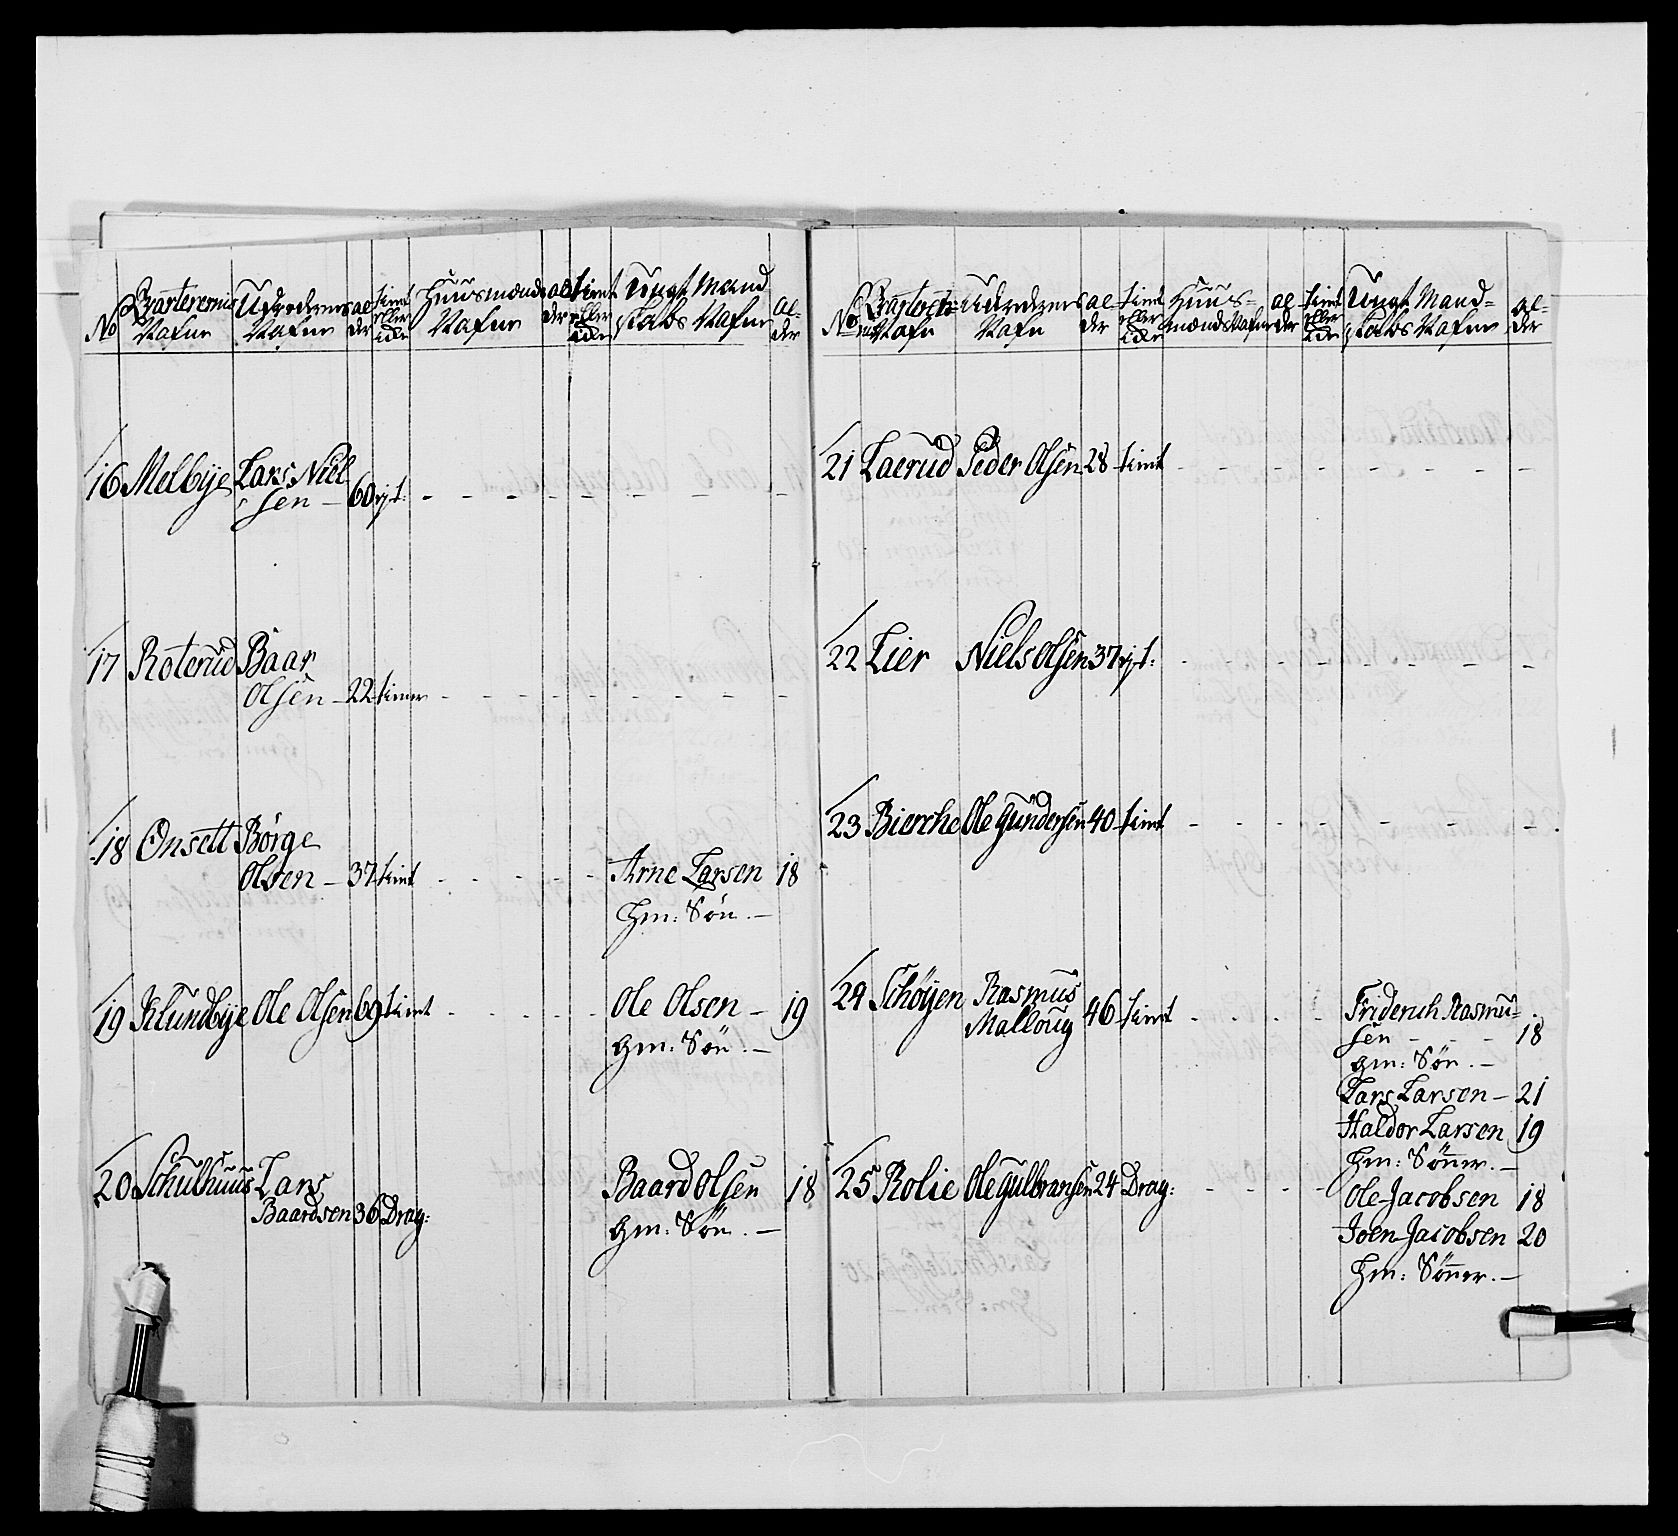 No Qvarterernis Nafne Udredernes Nafne al= der tient eller idn Huusmænds Nafne al der tient eller idn Ungt Mand skabs Nafne al= der
16 Melbye Lars Niel
sen — 60 rjt: - - - - - - -
17 Roterud Baar
Olsen — 22 tiener - - - - - - -
18 Onsett Børge
Olsen — 37 tient - - - - - Arne Larsen 18
Hm: Søn. —
19 Klundbye Ole Olsen 69 tient - - - - - Ole Olsen — 19
Hm: Søn. —
20 Schulhuus Lars
Baardsen 36 Drag: Baard Olsen 18
Hm: Søn. —
No Qvarterer= nis Nafn Udredernes Nafn al= der tient eller idn Huus= mænds Nafne al= der tient eller idn Ungt Mand= skabs Nafne al= der
21 Laerud Peder Olsen 28 tient - - - - - - - - -
22 Lier Niels Olsen 37 rjt: - - - - - - - - -
23 Bierche Ole Gundersen 40 tient - - - - - - - - -
24 Schøyen Rasmus
Malloug 46 tient - - - - Friderich Rasmu=
sen - - - 18
Hm: Søn. —
Lars Larsen — 21
Haldor Larsen 19
Hm: Sønner. —
25 Rolie Ole Gulbransen 24 Drag: - - - -
Ole Jacobsen 18
Joen Jacobsen 20
Hm: Sønner. —